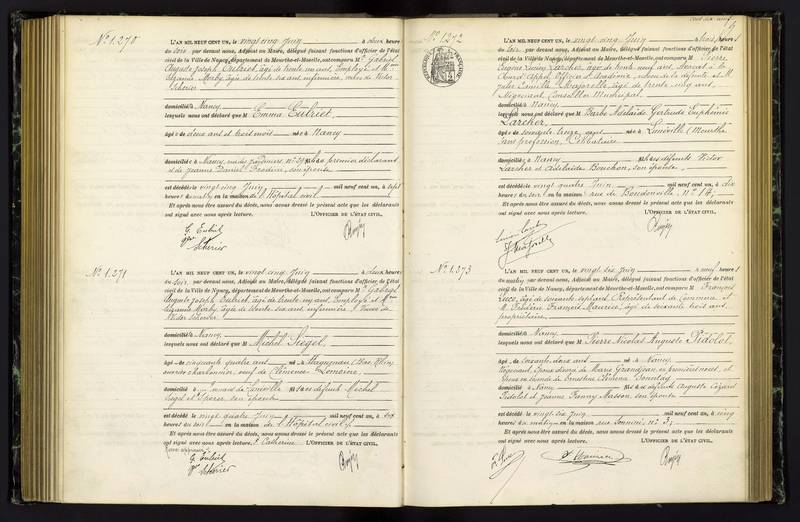 N° 1.270
L'AN MIL NEUF CENT UN, le vingt cinq Juin à deux heures
du soir, par devant nous, Adjoint au Maire, délégué faisant fonctions d'officier de l'état
civil de la Ville de Nancy, département de Meurthe-et-Moselle, ont comparu M. Gabriel
Auguste Joseph Eutriet, âgé de trente un ans, Employé et Mme
Suzanne Morby, âgée de trente six ans infirmière, veuve de Victor
Scherier
domicilié à Nancy
lesquels nous ont déclaré que M Emma Eutriet,
âgé e de deux ans et huit mois née à Nancy
domicilié à Nancy, rue des Jardiniers, n° fille du premier déclarant
et de Jeanne son épouse
est décédé le vingt cinq Juin mil neuf cent un, à sept
heures du matin en la maison de l'Hôpital civil
Et après nous être assuré du décès, nous avons dressé le présent acte que les déclarants
ont signé avec nous après lecture. L'OFFICIER DE L'ÉTAT CIVIL,
G. Eutriet
Vve Scherier
N° 1.271
L'AN MIL NEUF CENT UN, le vingt cinq Juin à deux heures
du soir, par devant nous, Adjoint au Maire, délégué faisant fonctions d'officier de l'état
civil de la Ville de Nancy, département de Meurthe-et-Moselle, ont comparu M. Gabriel
Auguste Joseph Eutriet, âgé de trente un ans, Employé et Mme
Suzanne Morby, âgée de trente six ans, infirmière, Veuve de
Victor Scherier
domicilié à Nancy
lesquels nous ont déclaré que M Michel Siegel,
âgé de cinquante quatre ans né à Haguenau (Bas-Rhin)
ouvrier charbonnier, veuf de Clémence Lemoine,
domicilié à Jarville fils de défunt Michel
Siegel et son épouse
est décédé le vingt quatre Juin mil neuf cent un, à
heures du soir en la maison de l'Hôpital civil
Et après nous être assuré du décès, nous avons dressé le présent acte que les déclarants
ont signé avec nous après lecture. L'OFFICIER DE L'ÉTAT CIVIL,
G. Eutriet
Vve Scherier
cent dix neuf
N° 1272
L'AN MIL NEUF CENT UN, le vingt cinq Juin à trois heures
du soir, par devant nous, Adjoint au Maire, délégué faisant fonctions d'officier de l'état
civil de la Ville de Nancy, département de Meurthe-et-Moselle, ont comparu M. Pierre
Eugène Lucien Larcher, âgé de trente neuf ans, Avocat à la
Cour d'Appel, Officier d'Académie, neveu de la défunte et M.
Jules Camille, âgé de trente cinq ans,
Négociant, Conseiller Municipal,
domicilié à Nancy
lesquels nous ont déclaré que M Barbe Adelaïde Gertrude Euphémie
Larcher,
âgé e de soixante treize ans née à Lunéville (Meurthe)
sans profession, Célibataire
domicilié à Nancy fille de défunts Victor
Larcher et Adelaïde Bouchon, son épouse
est décédé le vingt quatre Juin mil neuf cent un, à dix
heures du soir en la maison rue de Boudonville, n° 14,
Et après nous être assuré du décès, nous avons dressé le présent acte que les déclarants
ont signé avec nous après lecture. L'OFFICIER DE L'ÉTAT CIVIL,
N° 1.273
L'AN MIL NEUF CENT UN, le vingt six Juin à neuf heures
du matin par devant nous, Adjoint au Maire, délégué faisant fonctions d'officier de l'état
civil de la Ville de Nancy, département de Meurthe-et-Moselle, ont comparu M. François
âgé de soixante sept ans, Représentant de Commerce et
M. Frédéric François Maurice, âgé de soixante trois ans,
propriétaire,
domicilié à Nancy
lesquels nous ont déclaré que M Pierre Nicolas Auguste Pidolot,
âgé de soixante deux ans né à Nancy
Négociant, époux divorcé de Marie Grandjean, en premières noces, et
époux en secondes de Ernestine Clémence Sonntag
domicilié à Nancy fils de défunts Auguste Cézard
Pidolot et Jeanne Fanny Masson, son épouse
est décédé le vingt six Juin mil neuf cent un, à cinq
heures du matin en la maison rue n° 3,
Et après nous être assuré du décès, nous avons dressé le présent acte que les déclarants
ont signé avec nous après lecture. L'OFFICIER DE L'ÉTAT CIVIL,
F. Maurice